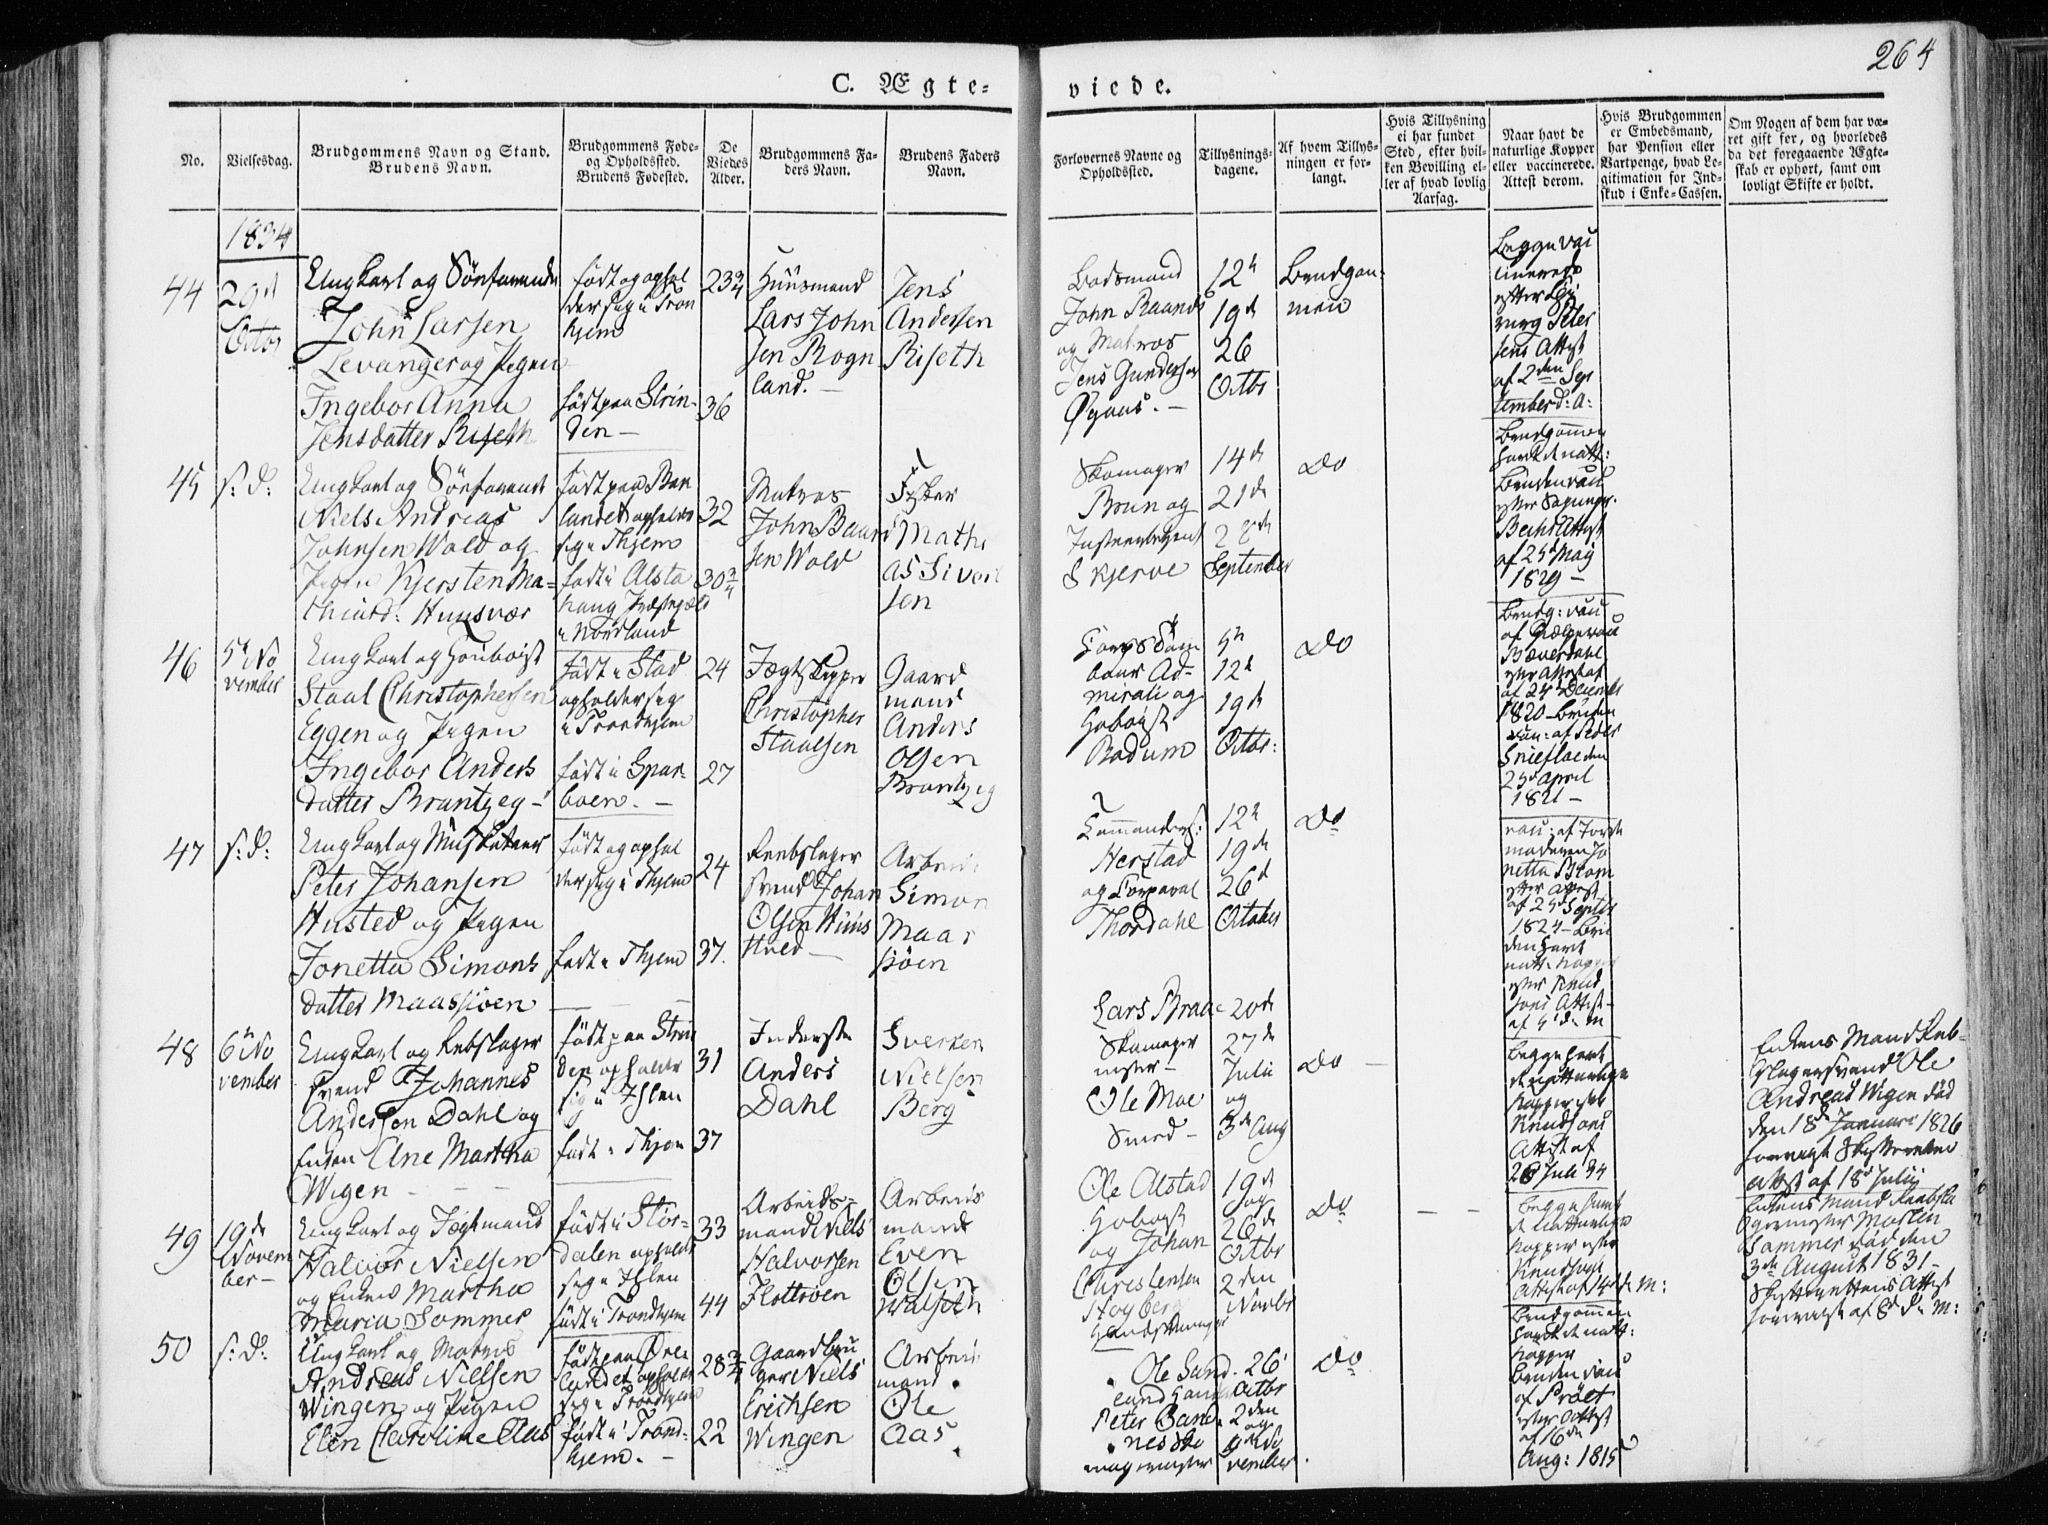 264
C. Ægte-
viede.
No.
Vielsesdag.
Brudgommens Navn og Stand.
Brudens Navn.
Brudgommens Føde-
og Opholdssted.
Brudens Fødested.
De
Viedes
Alder.
Brudgommens Fa-
ders Navn.
Brudens Faders
Navn.
Forlovernes Navne og
Opholdssted.
Tillysnings-
dagene.
Af hvem Tillys-
ningen er for-
langt.
Hvis Tillysning
ei har fundet
Sted, efter hvil-
ken Bevilling el-
ler af hvad lovlig
Aarsag.
Naar havt de
naturlige Kopper
eller vaccinerede.
Attest derom.
Hvis Brudgommen
er Embedsmand,
har Pension eller
Vartpenge, hvad Le-
gitimation for Ind-
skud i Enke-Cassen.
Om Nogen af dem har væ-
ret gift før, og hvorledes
da det foregaaende Ægte-
skab er ophørt, samt om
lovligt Skifte er holdt.
1834
44
29d
Octbr
Ungkarl og Sønfarende
John Larsen
Levanger og Pigen
Ingebor Anna
Jensdatter Riseth
født og ophol
der sig i Tron
hjem
født paa Strin-
den
23¾
36
Huusmand
Lars John
sen Rogn
land.
Jens
Andersen
Riseth
Baadsmand
John Raanes
og Matros
Jens Gundersen
Øyaas.
12te
19de
26
Octbr
Brudgom-
men
Begge vac
cinerede
efter
Peter
sens Attest
af 2den Sep
tember d: A:
45
s: d:
Ungkarl og Sønfarende
Niels Andreas
Johnsen Wold og
Pigen Kjersten Ma-
thiasd: Huusvær
født paa
landet opholder
sig i Thjem
født i Alsta
houg Præstegjeld
i Nordland
32
30¾
Matros
John Baar
sen Wold
Fisker
Mathi
as Sivert
sen
Skomager
Brun og
Skjerve
14de
21de
28de
September
Do
Brudgommen
havt de natt:
Bruden vac
efter
Bechs Attest
af 25d May
1829
46
5te No
vember
Ungkarl og Houboist
Staal Christophersen
Eggen og Pigen
Ingebor Anders
datter Brantzeg
født i Stod
opholder sig
i Trondhjem
født i Spar
boen.
24
27
Jægtskipper
Christopher
Staalsen
Gaard
mand
Anders
Olsen
Brantzeg
Corps Tam
bour Ad-
mirali og
Hoboist
Badum
5te
12te
19de
Octbr:
Do
Brudg: vac
af
Bæverdahl
efter Attest af
af 25d Decembr
1820 Bruden
vac: af Peder
Snieflaeden
25d April
1821
47
s: d:
Ungkarl og Musketeer
Peter Johansen
Husted og Pigen
Jonetta Simons
datter Maassjøen
født og ophol
der sig i Thjem
født i Thjem
24
37.
Reebslager
svend Johan
Olsen Huus
sted
Arbeids
Simon
Maas
sjøen
Commandeers:
Herstad
og Corporal
Thordahl
12te
19de
26d
October
Do
vac: af Jorde
moderen Jo
netta Blom
efter Attest
af 25d Septbr
1824 Bru
den havt
natt: kopper
efter Knud
sens Attest
af 5te d: M
48
6te No
vember
Ungkarl og Rebslager
svend Johannes
Andersen Dahl og
Enken Ane Martha
Wigen
født paa Strin
den opholder
sig i Ihlen
født i Thjem
31
37
Inderste
Anders
Dahl
Sverken
Nielsen
Berg
Lars Braae
Skomager
mester
Ole Moe
Smed
20de
27de
Julii
og
3de Aug
Do
Begge havt
de naturlige
kopper efter
Knudsens
Attest af
28 Juli 34
Enkens Mand Reb-
slagersvend Ole
Andreas Wigen død
den 18de Januari 1826
foreviist Skifterettens
Attest af 18d Julii
49
19de
Novem
ber
Ungkarl og Jægtmand
Halvor Nielsen
og Enken Martha
Maria Sommer
født i Stør-
dalen opholder
sig i Ihlen
født i Trondhjem
33
44
Arbeids-
mand Niels
Halvorsen
Flottroen
Arbeids
mand
Even
Olsen
Walseth
Ole Alstad
Hoboist
og Johan
Christensen
Hogberg
Handskemager
19d
og
26de
Octbr
2den
Novbr
Do
Begge havt
de naturlige
kopper efter
Knudsens
Attest af 14de d: M:
Enkens Mand Reebsla
germester Morten
Sommer død den
3de August 1831
Skifterettens Attest
foreviist af 8de d: M:
50
s: d:
Ungkarl og Matros
Andreas Nielsen
Wingen og Pigen
Elen Charoline Aas
født paa Øre
landet opholder
sig i Trondhjem
født i Trond-
hjem.
28¾
22
Gaardbru
ger Niels
Erichsen
Wingen
Arbeids
mand
Ole
Aas
Ole Sand.
Peter Sand
nes Sko
magermester
26
Octbr
2den
og
9de No
vember
Do
Brudgommen
havt de natt:
kopper
Bruden vac
af Prost
efter Attest
af 16de
Aug: 1815